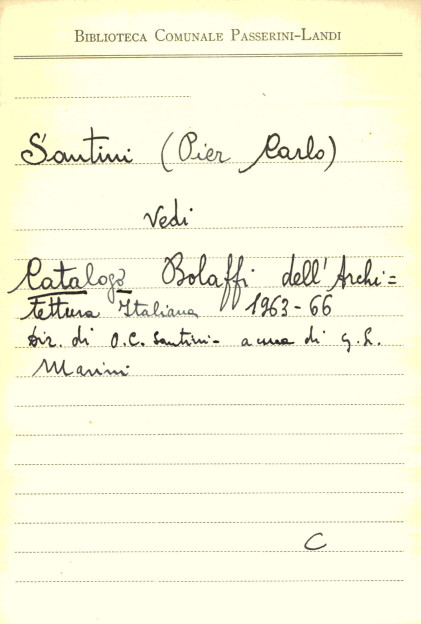 BIBLIOTECA COMUNALE PASSERINI-LANDI
Santini (Pier Carlo)
Vedi
Catalogo Bolaffi dell'Archi=
tettura Italiana 1963-66
Dir. di O.C. Santini - a cura di G. L.
Marini
C